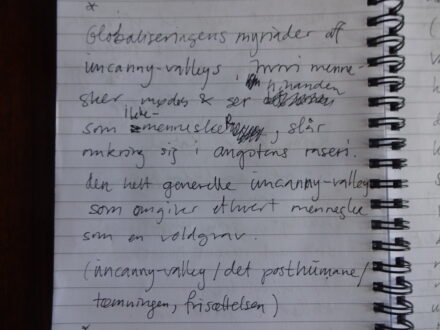 *
Globaliseringens myriader af
uncanny-valleys, hvori menne-
hinanden
sker mødes & ser
ikke-
som mennesker, slår
omkring sig i angstens raseri.
den helt generelle uncanny-valley
som omgiver ethvert menneske
som en voldgrav.
(uncanny-valley/det posthumane/
tæmningen, frisættelsen)